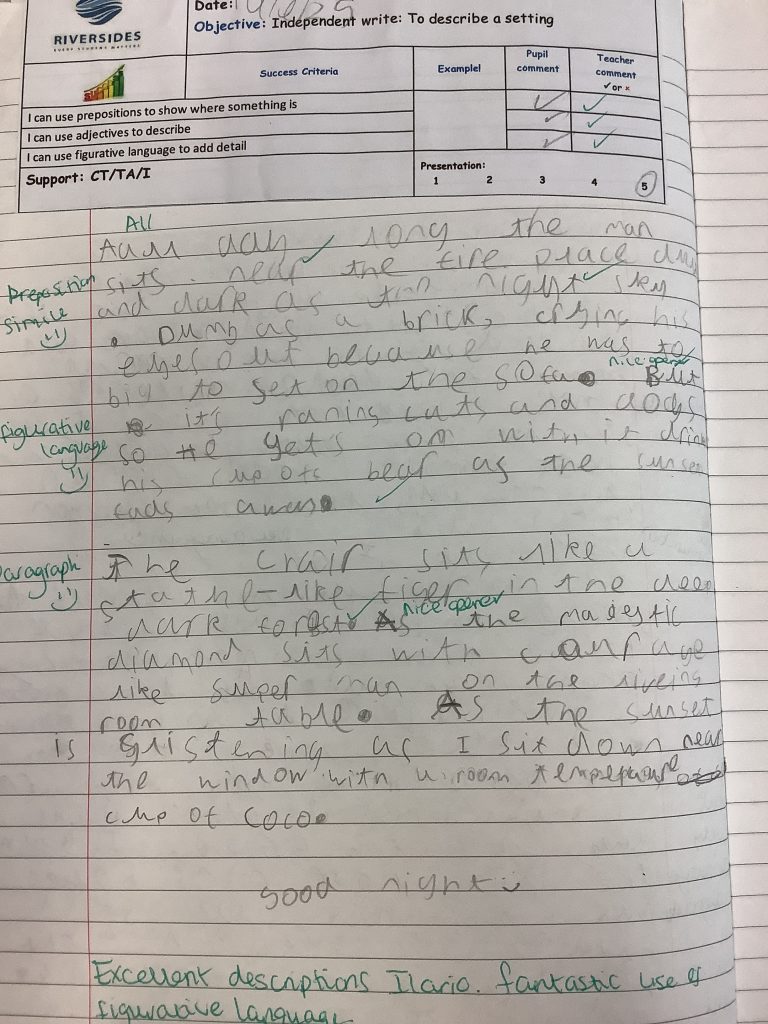 RIVERSIDES
EVERY STUDENT MATTERS
Date:
Objective: Independent write: To describe a setting
Success Criteria
Example!
Pupil comment
Teacher comment
✓ or ×
I can use prepositions to show where something is
I can use adjectives to describe
I can use figurative language to add detail
Support: CT/TA/I
Presentation:
1 2 3 4 5
All
day long the man
Preposition
sits near the fire place
simile
and dark as night sky
Dumb as a brick, crying his
eyes out because he has to
nice opener
big to get on the sofa. But
figurative language
it's raning cats and dogs
so He get's on with it drink
his cup of bear as the sunset
fads away.
Paragraph
The crair sits like a
-like tiger in the deep
nice opener
dark forest. As the majestic
diamond sits with courage
like super man on the liveing
room table. As the sunset
is Glistening as I sit down near
the window with a room
cup of coco.
good night
Excellent descriptions Ilario. fantastic use of
figurative language